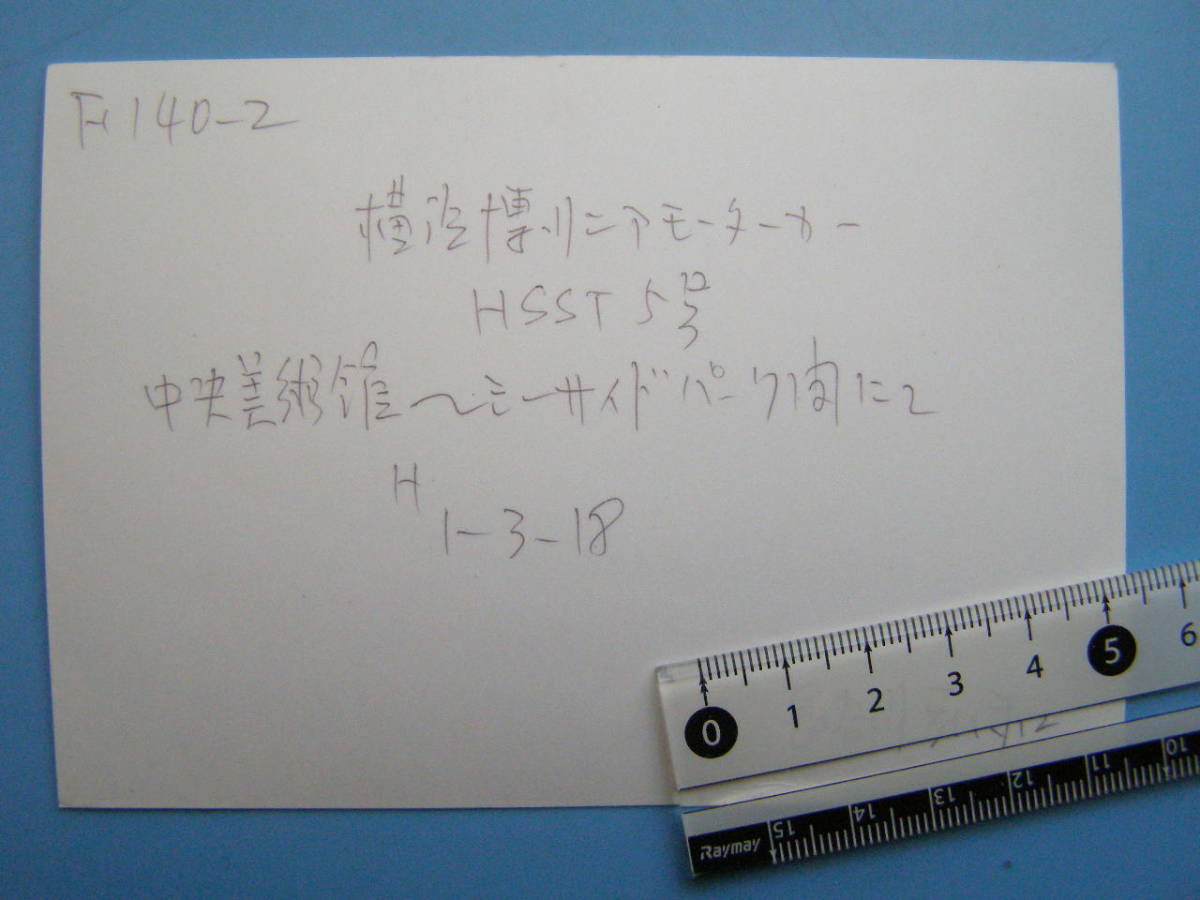 F1140-2
横浜博リニアモーターカー
HSST5号
中央美術館〜シーサイドパーク間にて
H
1-3-18
0 1 2 3 4 5 6
Raymay 15 14 13 12 11 10